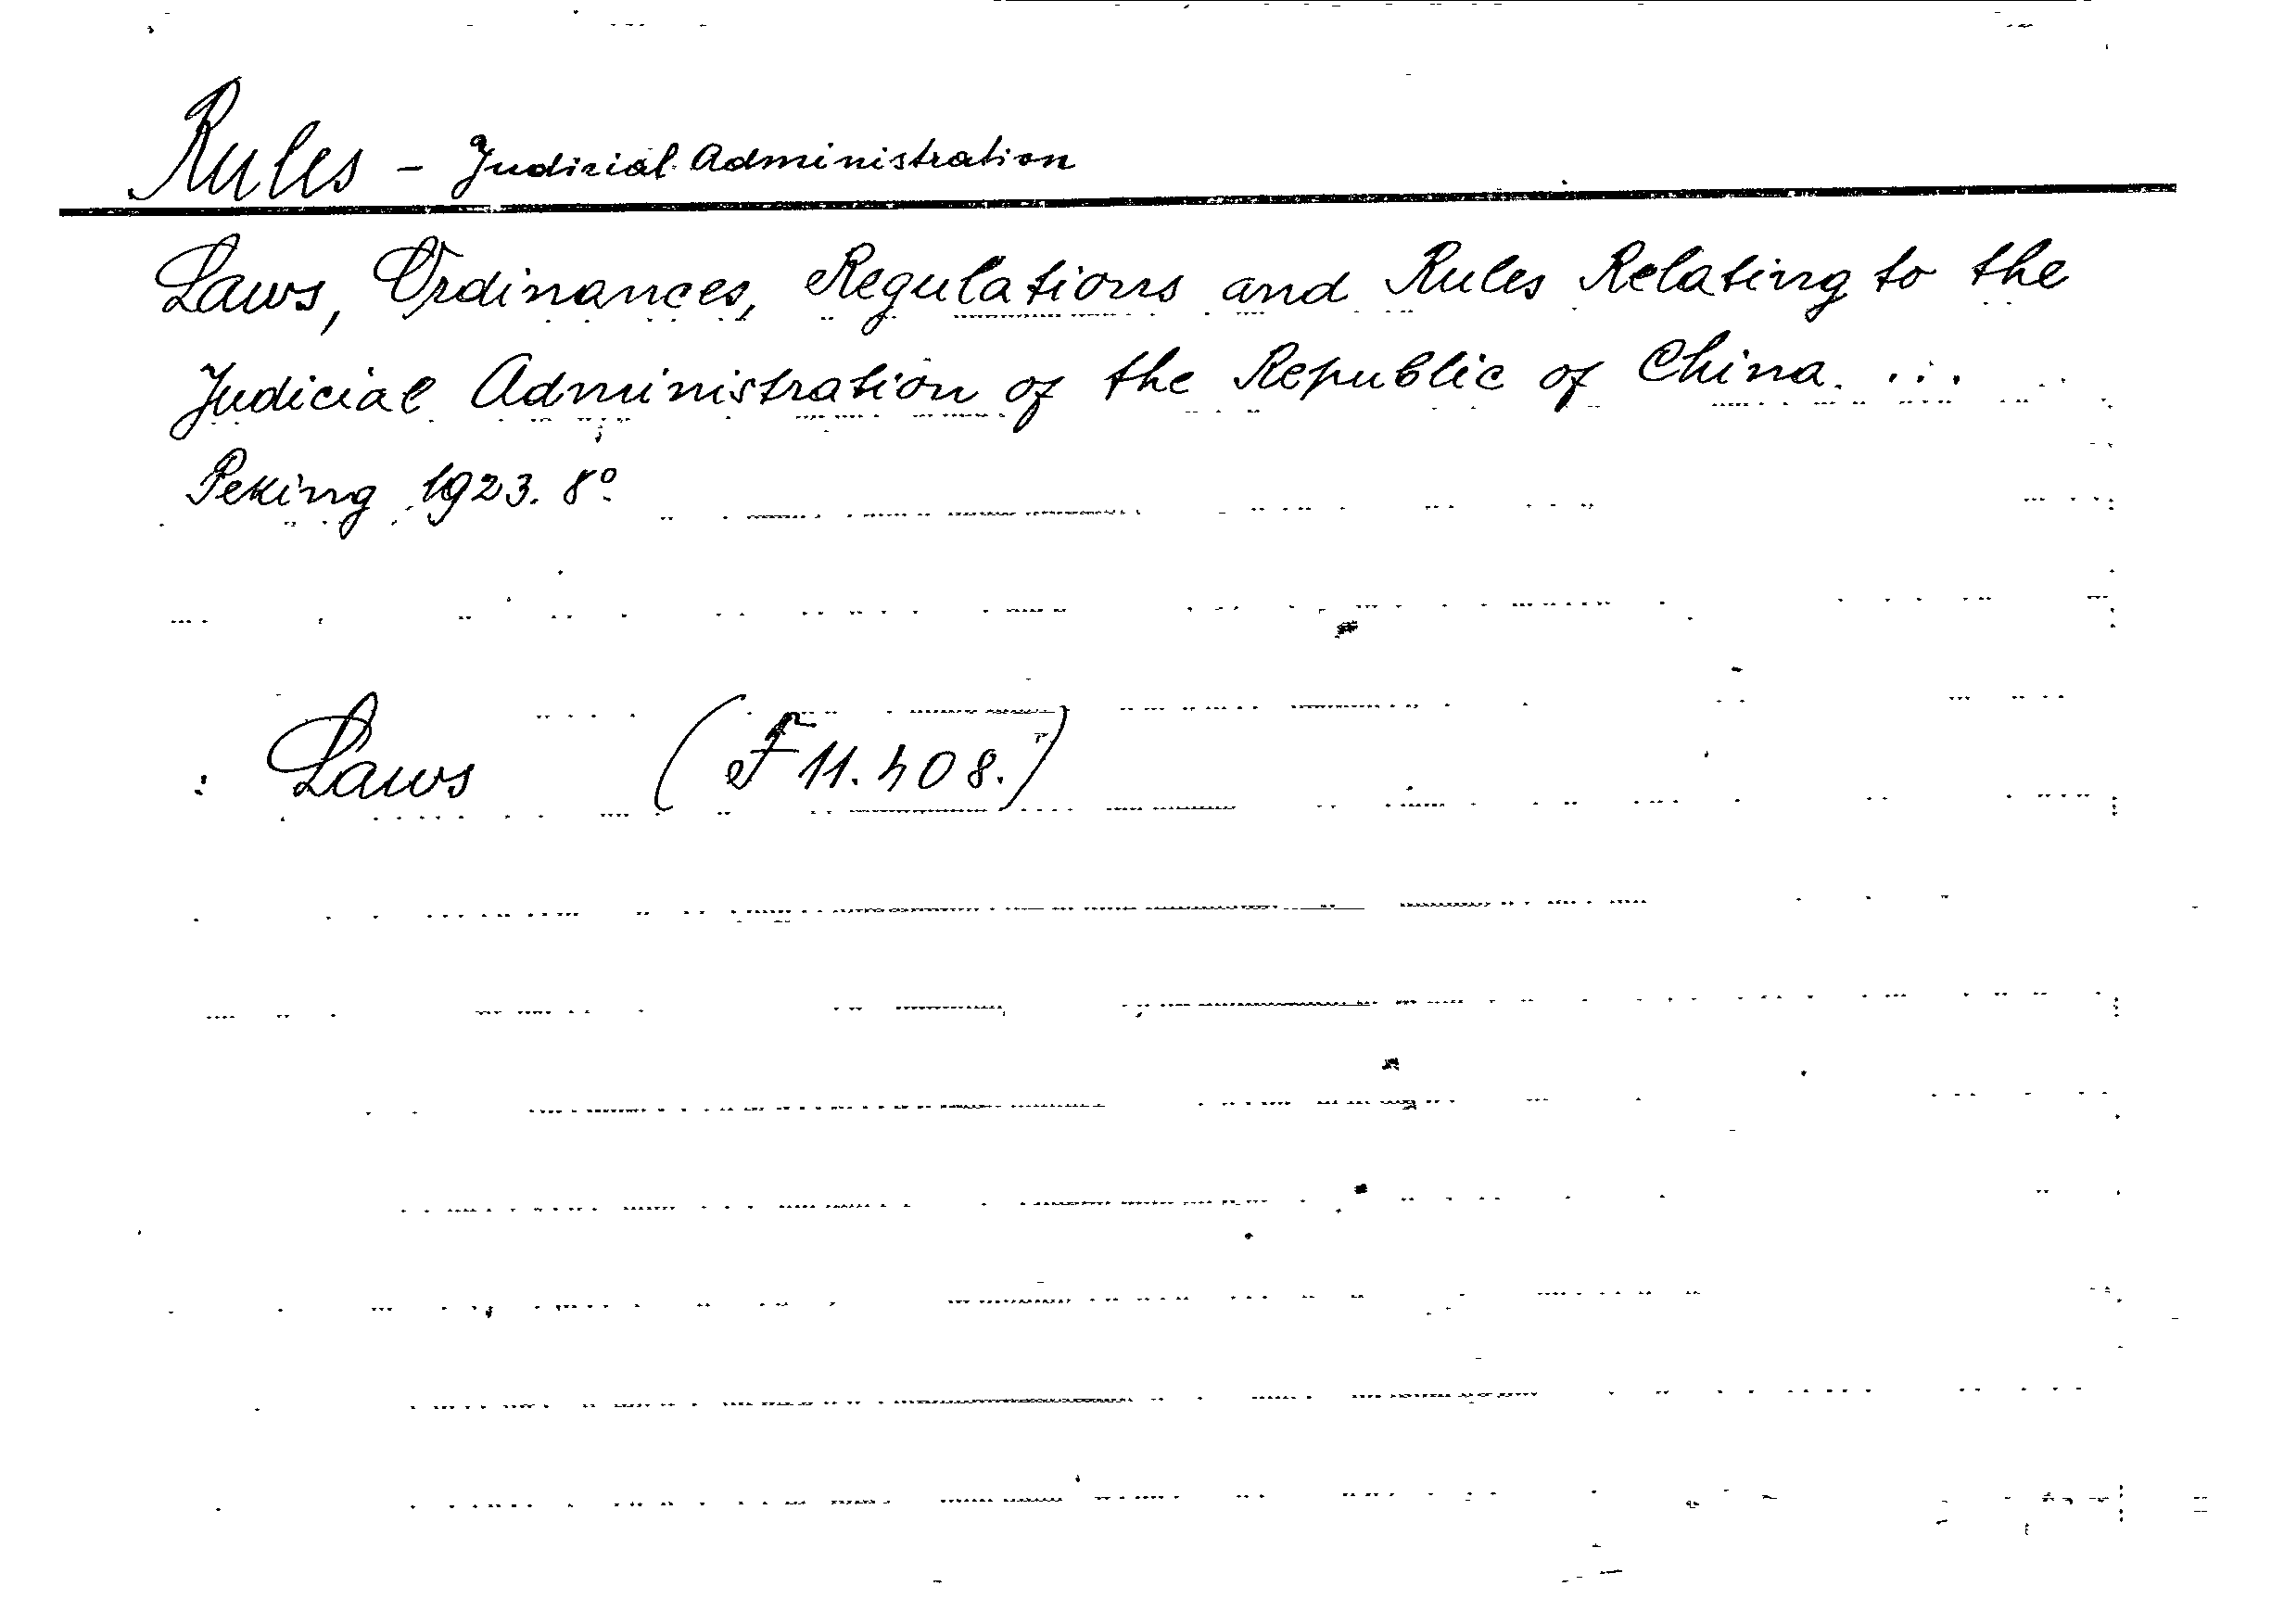 Rules - Judicial Administration
Laws, Ordinances, Regulations and Rules Relating to the
Judicial Administration of the Republic of China. ...
Peking 1923. 8°.
: Laws (F 11.408.)